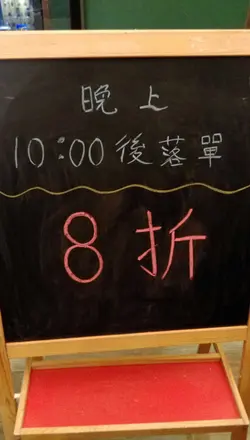 晚上
10:00後落單
8折